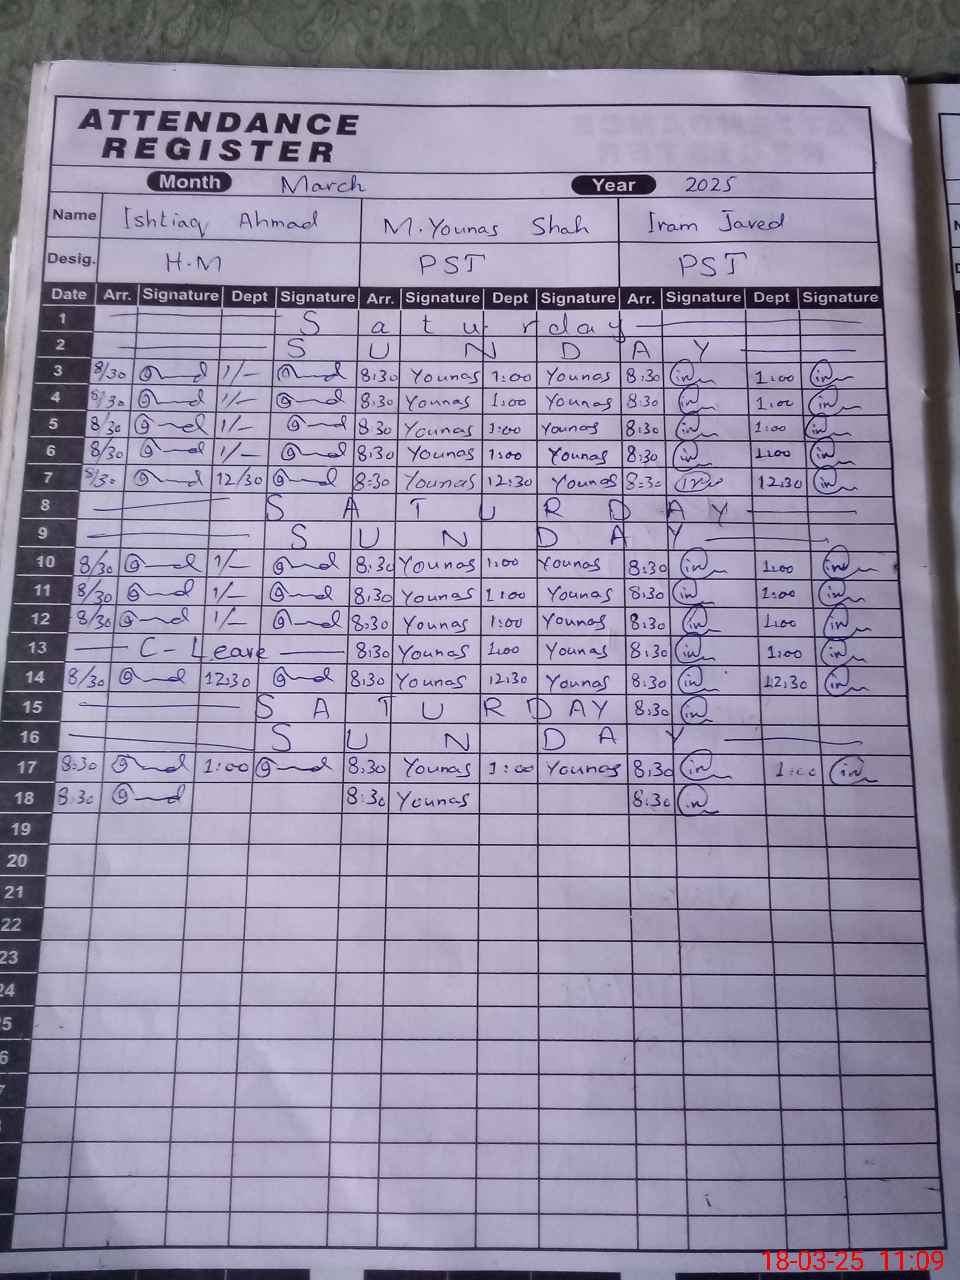 ATTENDANCE
REGISTER
Month March Year 2025
Name Ishtiaq Ahmad M. Younas Shah Iram Javed
Desig. H.M PST PST
Date Arr. Signature Dept Signature Arr. Signature Dept Signature Arr. Signature Dept Signature
1 Saturday
2 SUNDAY
3 8/30 1/- 8:30 Younas 1:00 Younas 8:30 in 1:00 in
4 8/30 1/- 8:30 Younas 1:00 Younas 8:30 in 1:00 in
5 8/30 1/- 8:30 Younas 1:00 Younas 8:30 in 1:00 in
6 8/30 1/- 8:30 Younas 1:00 Younas 8:30 in 1:00 in
7 8/30 12/30 8:30 Younas 12:30 Younas 8:30 in 12:30 in
8 SATURDAY
9 SUNDAY
10 8/30 1/- 8:30 Younas 1:00 Younas 8:30 in 1:00 in
11 8/30 1/- 8:30 Younas 1:00 Younas 8:30 in 1:00 in
12 8/30 1/- 8:30 Younas 1:00 Younas 8:30 in 1:00 in
13 C-Leave 8:30 Younas 1:00 Younas 8:30 in 1:00 in
14 8/30 12:30 8:30 Younas 12:30 Younas 8:30 in 12:30 in
15 SATURDAY 8:30 in
16 SUNDAY
17 8:30 1:00 8:30 Younas 1:00 Younas 8:30 in 1:00 in
18 8:30 8:30 Younas 8:30 in
19
20
21
22
23
24
5
6
18-03-25 11:09